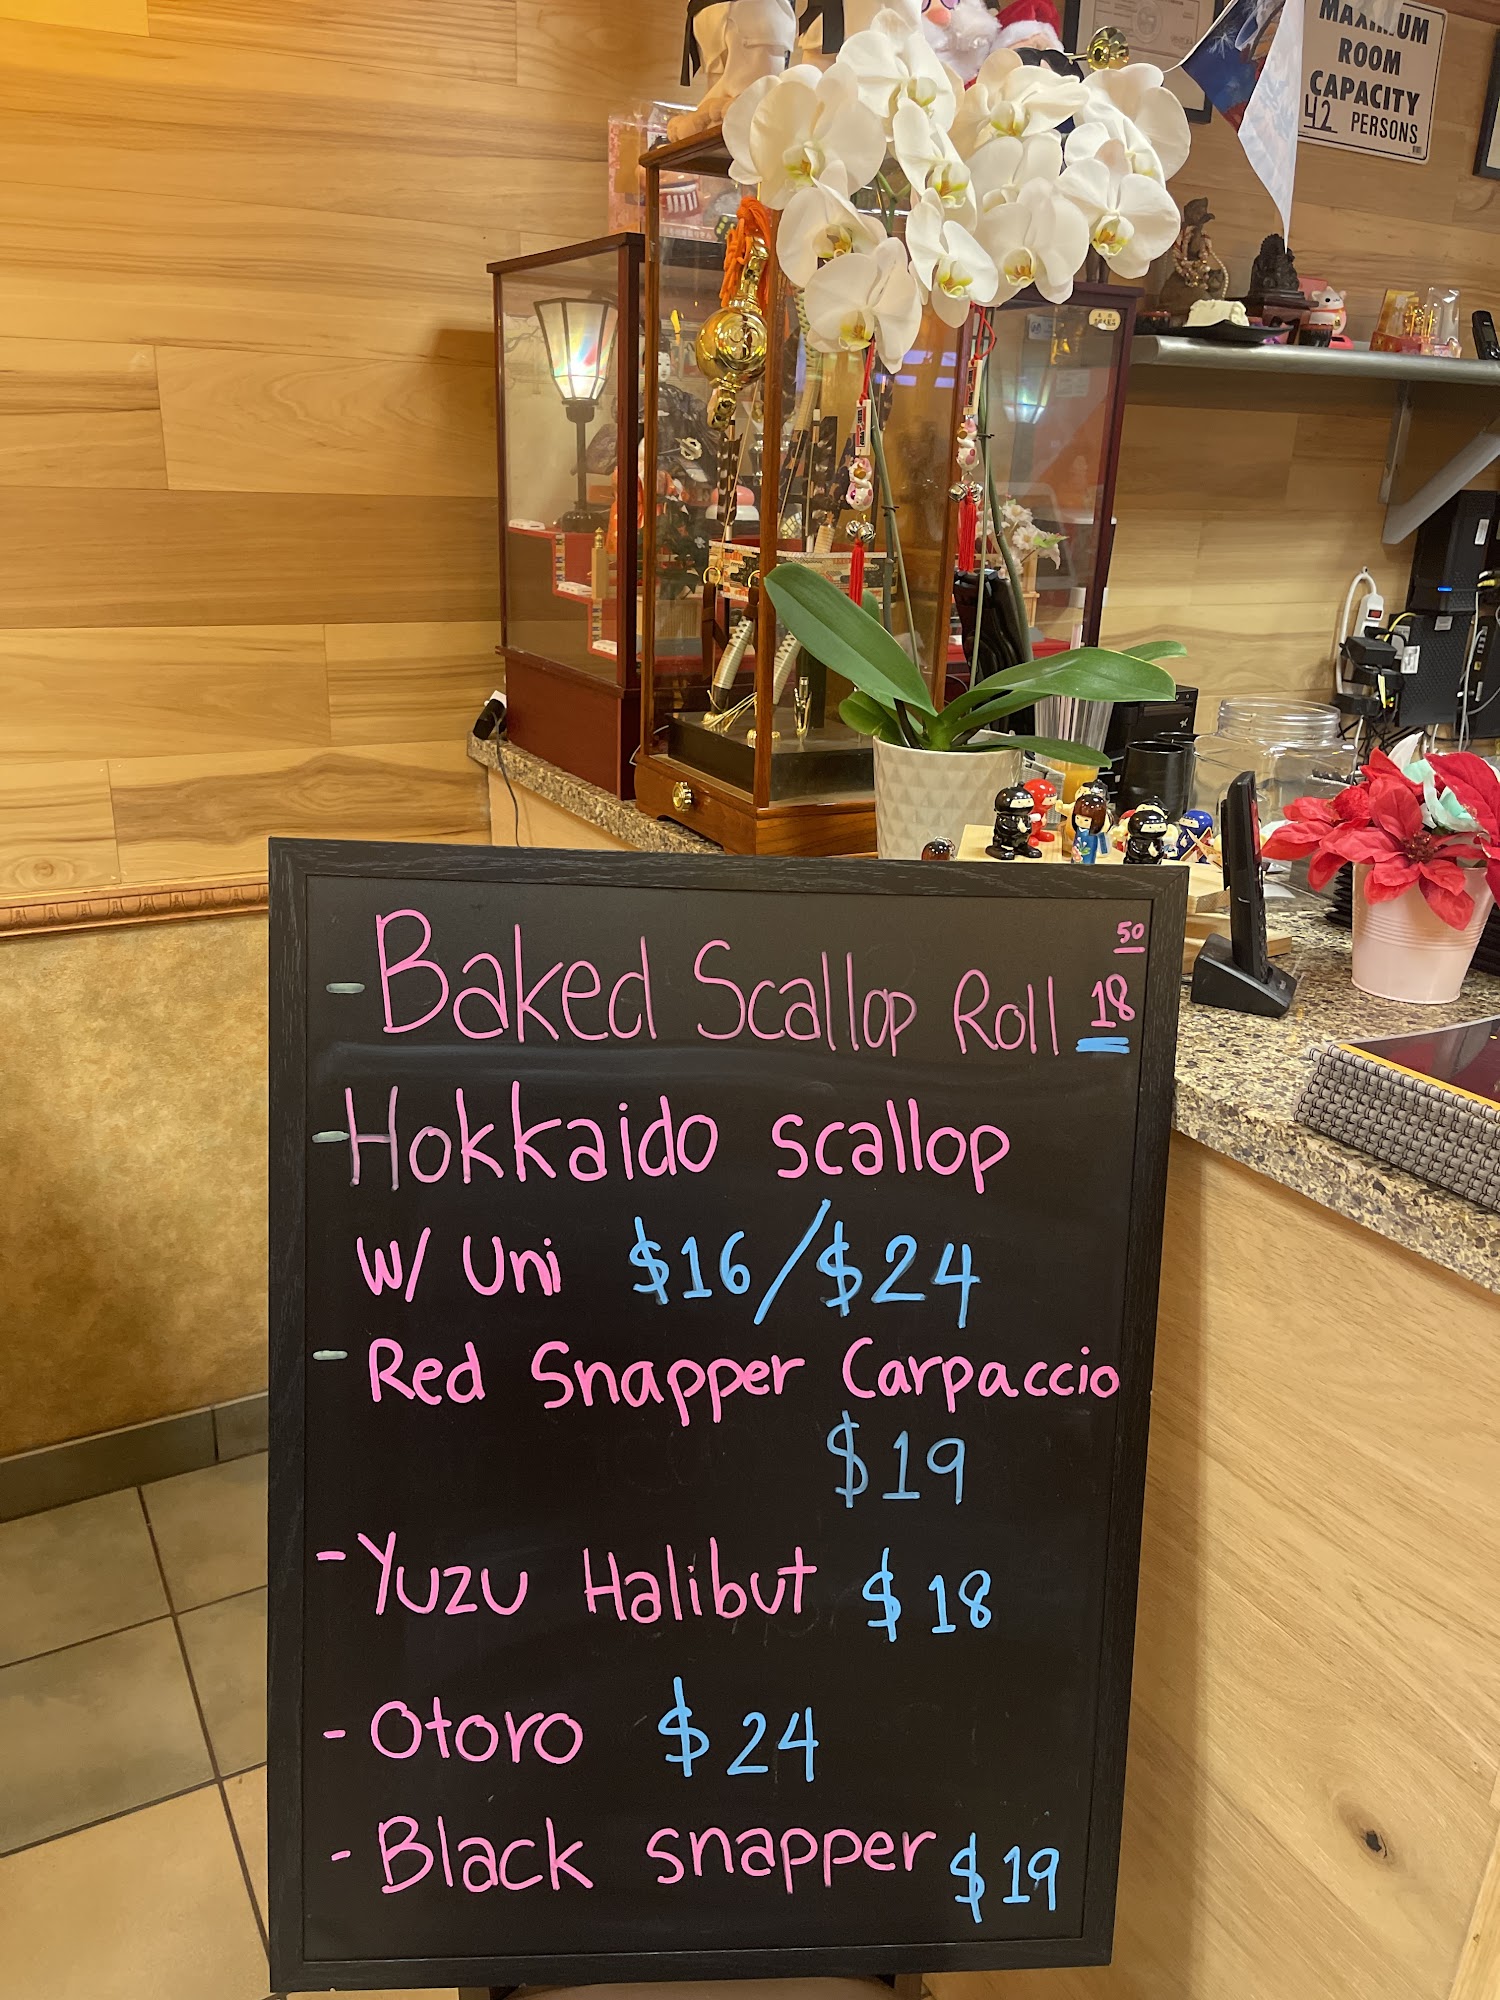 MAXIMUM
ROOM
CAPACITY
42 PERSONS
50
- Baked Scallop Roll 18
- Hokkaido scallop
w/ Uni $16/$24
- Red Snapper Carpaccio
$19
- Yuzu Halibut $18
- Otoro $24
- Black snapper $19